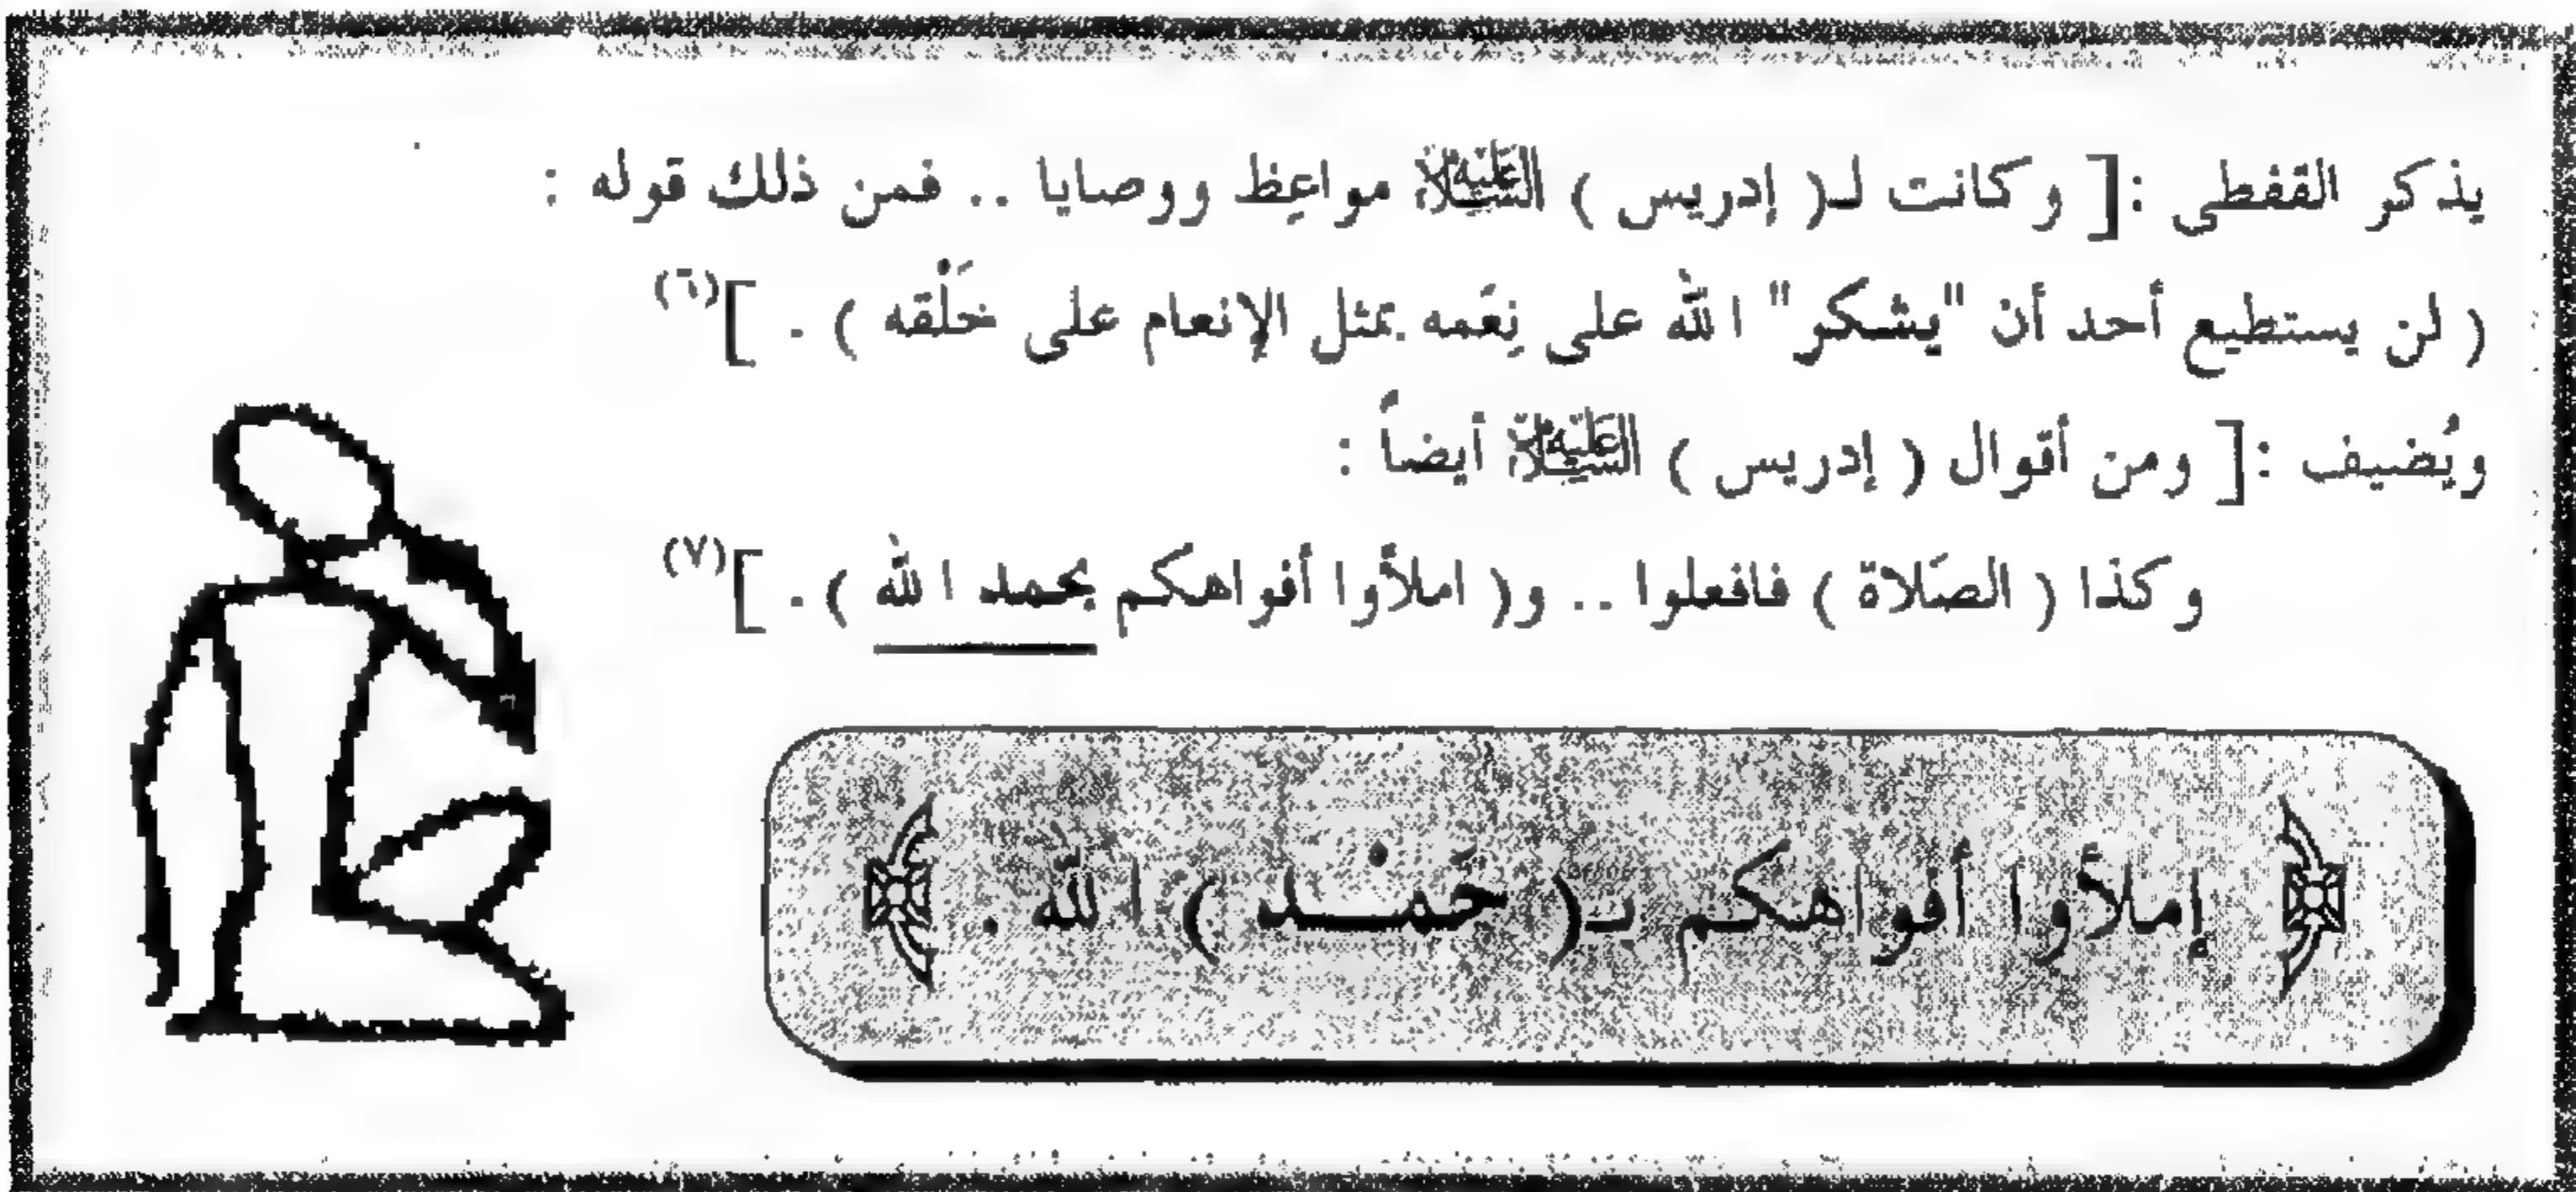 يذكر القفطى :[ وكانت لـ( إدريس ) عَلَيْهِ السَّلَام مواعِظ ووصايا .. فمن ذلك قوله :
( لن يستطيع أحد أن "يشكر" الله على نِعَمه بمثل الإنعام على خَلْقه ) . ](٦)
ويُضيف :[ ومن أقوال ( إدريس ) عَلَيْهِ السَّلَام أيضاً :
وكذا ( الصَلاة ) فافعلوا .. و( املأوا أفواهكم بحمد الله ) . ](٧)
إملأوا أفواهكم بـ( حَمْـد ) الله .